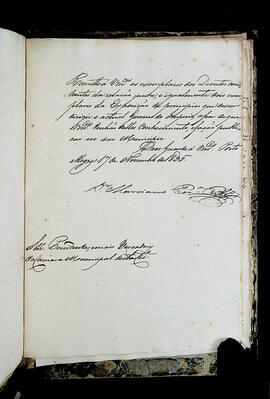 Remetto a Vmces os exemplares dos Decretos cons-
tantes da relação junta, e igualmente dous exem-
plares da Exposição dos principios que devem
dirigir o actual Governo do Imperio, afim de que
Vmces tenhão delles conhecimento, e fação publi-
car no seu Municipio.
Deos Guarde a Vmces. Porto
Alegre 17 de Novembro de 1835.
Dr Marciano Pera Ribro
Snrs. Presidente, e mais Vereadores
da Camara Municipal